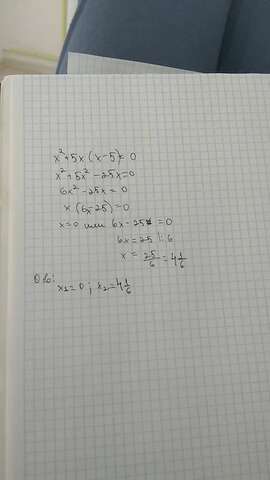 x²+5x(x-5)=0
x²+5x²-25x=0
6x²-25x=0
x(6x-25)=0
x=0 или 6x-25=0
6x=25 |:6
x=25/6=4 1/6
Отв:
x₁=0; x₂=4 1/6